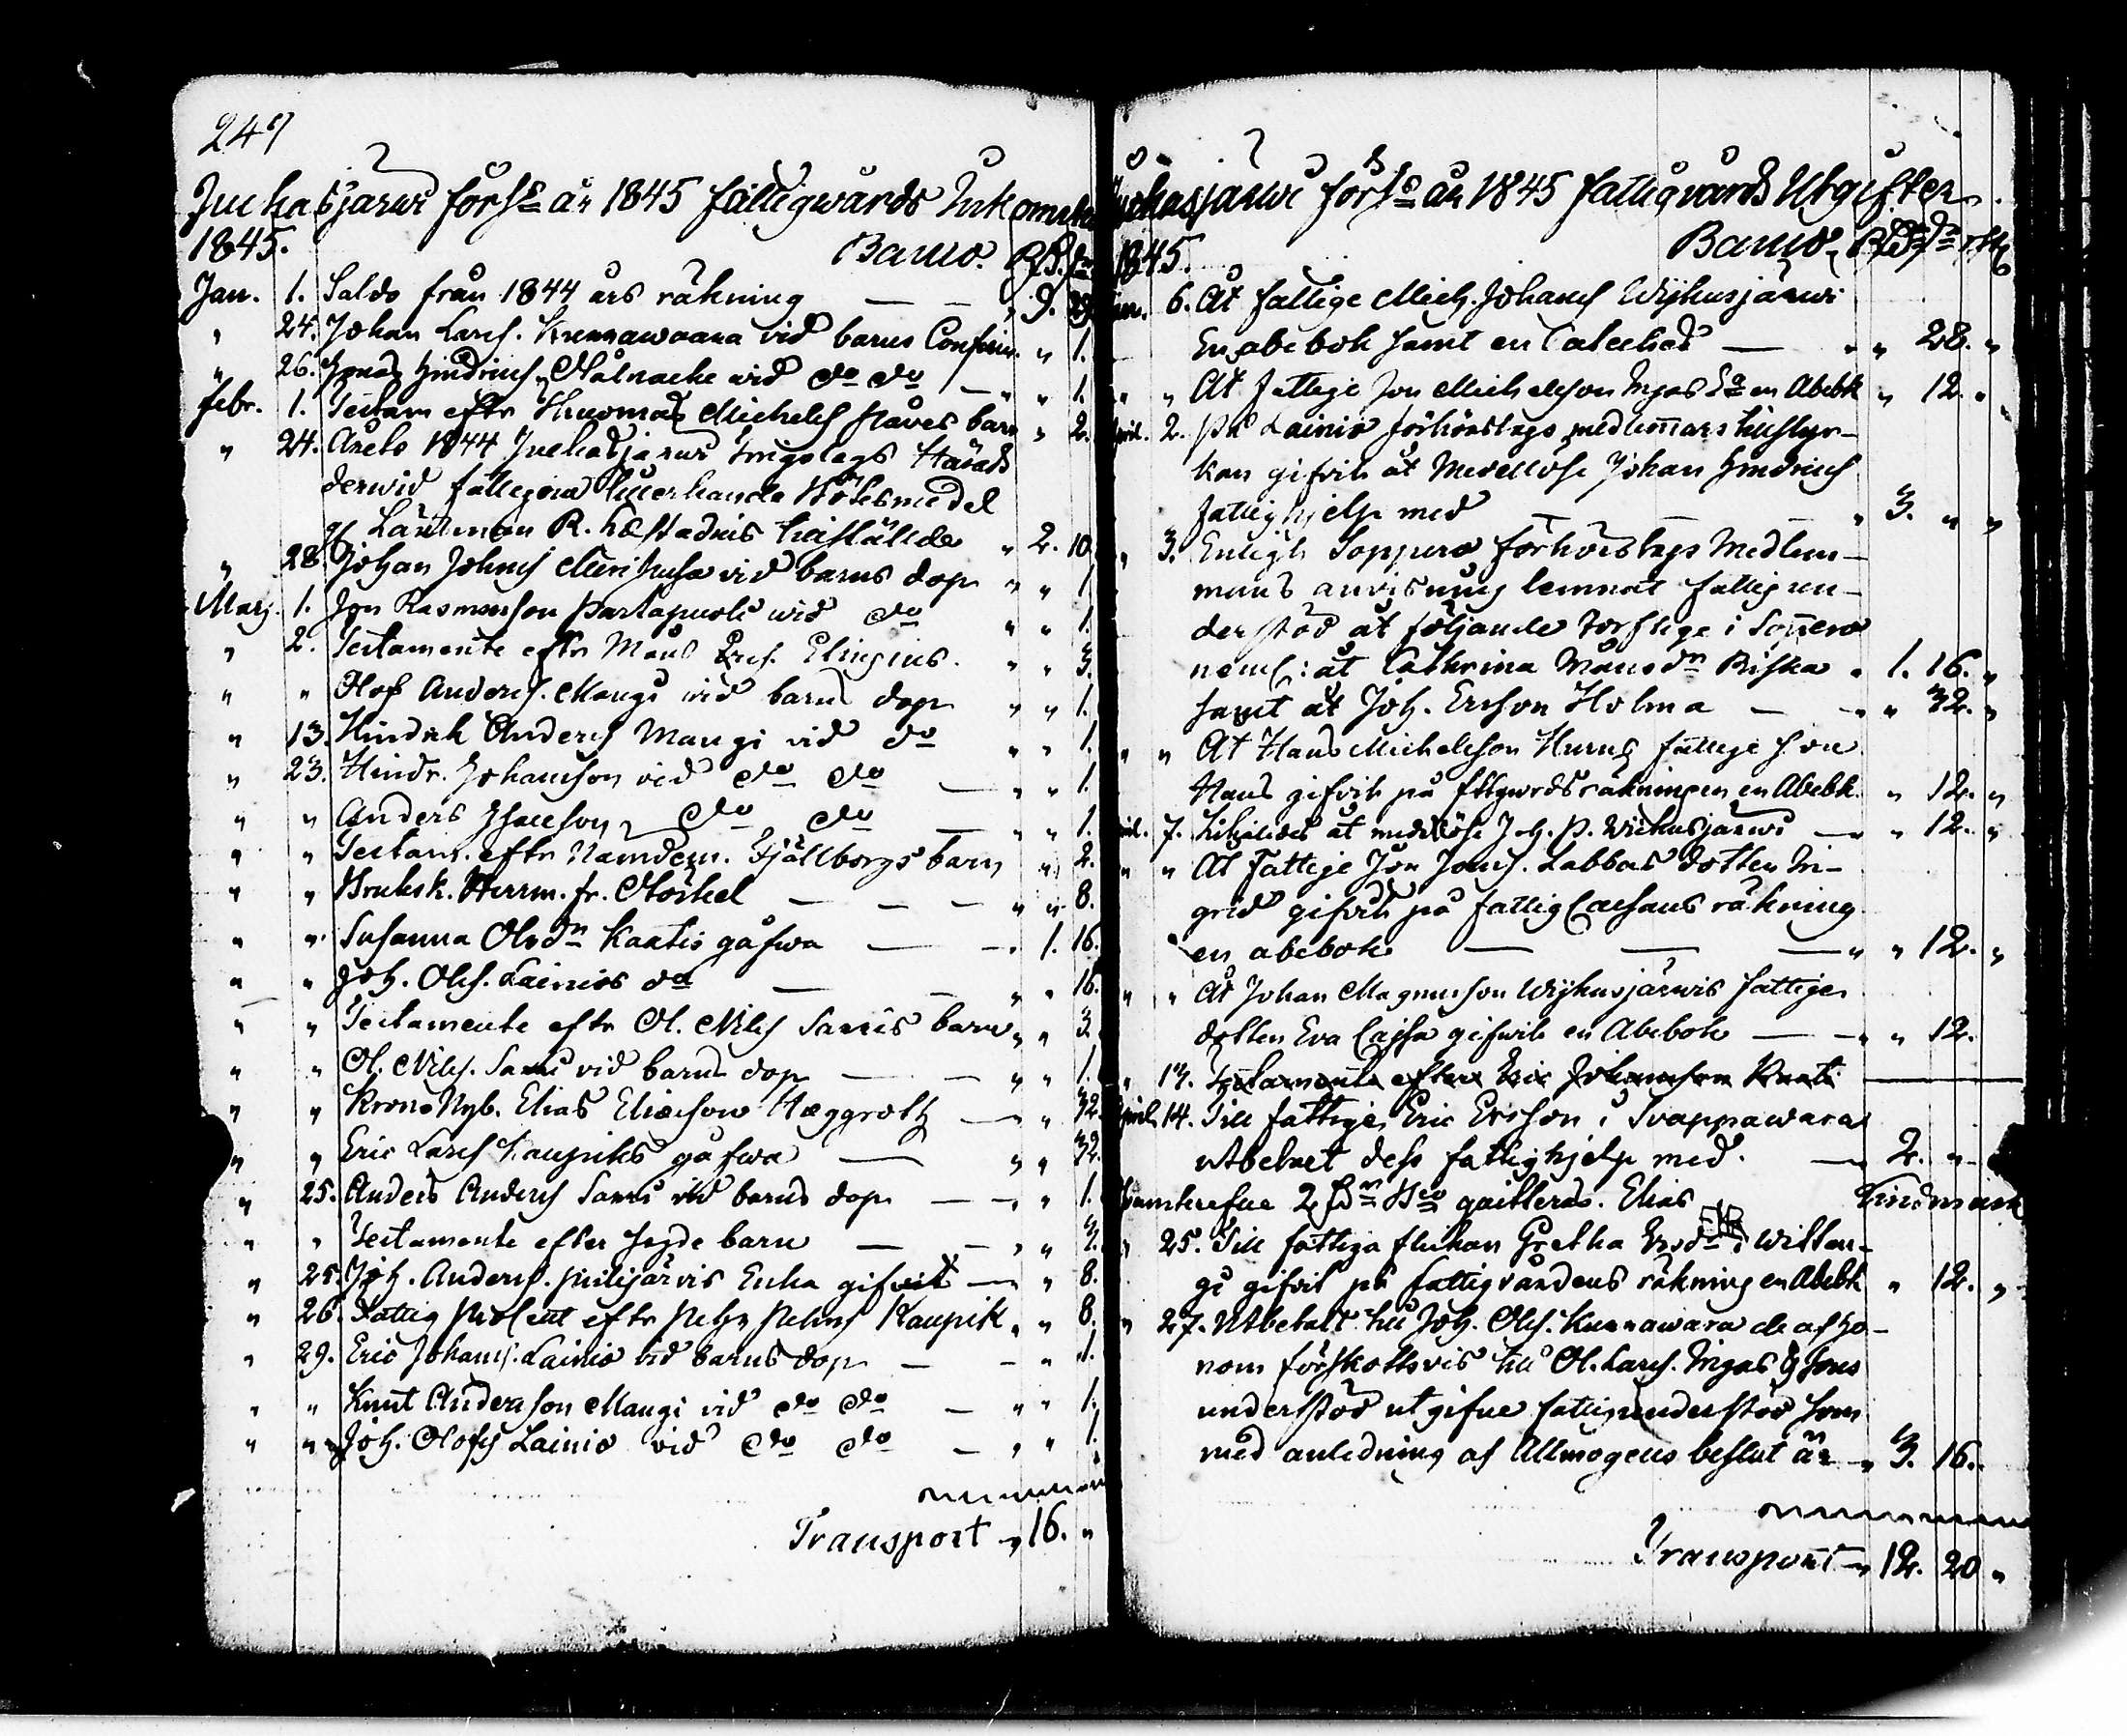 247
Juckasjärwi förs:s år 1845 fattigwårds Inkomst
1845. Banco. Rd. s.
Jan. 1. Saldo från 1844 års räkning — — „ 9. 29.
„ 24. Johan Larss. Kunnawaara vid barns Confirm. „ 1.
„ 26. Jonas Hindricss. wid do do — „ „ 1.
Febr. 1. Testam eftr Thuomas Michelss barn „ 2.
„ 24. Årets 1844 Juckasjärwi tingslags Härads
derwid fallegna Bötesmedel
gf Länsman R. Læstadius tillstälde „ 2. 10.
„ 28. Johan Johnss vid barns dop „ „ 1.
Marz. 1. Jon Rasmusson Partapuoli wid do „ „ 1.
„ 2. Testamente eftr Måns Elingius. „ „ 3.
„ „ Olof Anderss. Mangi vid barns dop „ „ 1.
„ 13. Hindrik Anderss Mangi vid do „ „ 1.
„ 23. Hindr. Johansson vid do do — „ „ 1.
„ „ Anders Isacsson do do — „ „ 1.
„ „ Testam. eftr Nämdem. Fjällborgs barn „ 2.
„ „ Bruksk. Herrm. fr. — — — „ „ 8.
„ „ Susanna Olsdn Kaatis gåfwa — — . 1. 16.
„ „ Joh. Olss. Lainios do — — „ „ 16.
„ „ Testamente eftr Ol. Nilss Sarris barn „ „ 3.
„ „ Ol. Nilss. Sarri vid barns dop — — „ „ 1.
„ „ Krono Nyb. Elias Eliæson Hæggroth — „ 32.
„ „ Eric Larss Kaupiks gåfwa — „ „ 32.
„ 25. Anders Anderss Sarri vid barns dop — „ 1.
„ „ Testamente efter barn — — „ „
„ 25. Joh. Anderss. Enka gifwit — „ 8.
„ 26. Fattig procent eftr Pehr Pehrss Kaupik „ „ 8.
„ 29. Eric Johanss. Lainio vid barns dop — — „ 1.
„ „ Knut Anderson Mangi vid do do — „ „ 1.
„ „ Joh. Olofss Lainio vid do do — „ „ 1.
Transport „ 16. „
Juckasjärwi förs:s år 1845 fattigvårds Utgifter.
1845. Banco.
Jan. 6. At fattige Mich. Johanss Wijkusjärwi
En abebok samt en Cateches — „ „ 28. „
„ „ At fattige Jon Michelsson Ingas en Abebk „ 12. „
April. 2. På Lainio förhörslags medlemmars tillstyr-
kan gifvit åt Medellöse Johan Hindricss
fattighjelp med — — „ 3. „ „
„ 3. Enligt Soppero förhörslags Medlem-
mans anvisning lemnat fattigun-
derstöd åt följande torftige i Soppero
neml: åt Cathrina Månsdn Piska „ 1. 16. „
samt åt Joh. Ersson Holma — „ „ 32. „
„ „ At Hans Michelsson Hurus fattige son
Hans gifvit på fttgwrdsräkningen en Abebk. „ 12. „
April. 7. åt medellöse Joh. P. Wickusjärwi — „ 12. „
„ „ At Fattige Jon Jonss. Labbas dotter In-
grid gifvit på fattigCassans räkning
en abebok — — — „ „ 12. „
„ „ At Johan Magnusson Wijkusjärwis fattige
dotter Eva Cajsa gifwit en Abebok — „ „ 12.
„ 13. Testamente efter Eric Johansson Kaati
April 14. Till fattige Eric Ersson i Svappawara
utbetalt dess fattighjelp med. — 2. „
2 Rdr Bco qvitteras. Elias Lindmark
„ 25. Till fattiga flickan Gretha Ersdn i Wittan-
gi gifvit på fattigvårdens räkning en Abebk „ 12. „
„ 27. Utbetalt till Joh. Olss. Kunnawara de af ho-
nom förskottsvis till Ol. Larss. Ingas Jons
understöd utgifne fattigunderstöd som
med anledning af Allmogens beslut är „ 3. 16.
Transport „ 12. 20 „